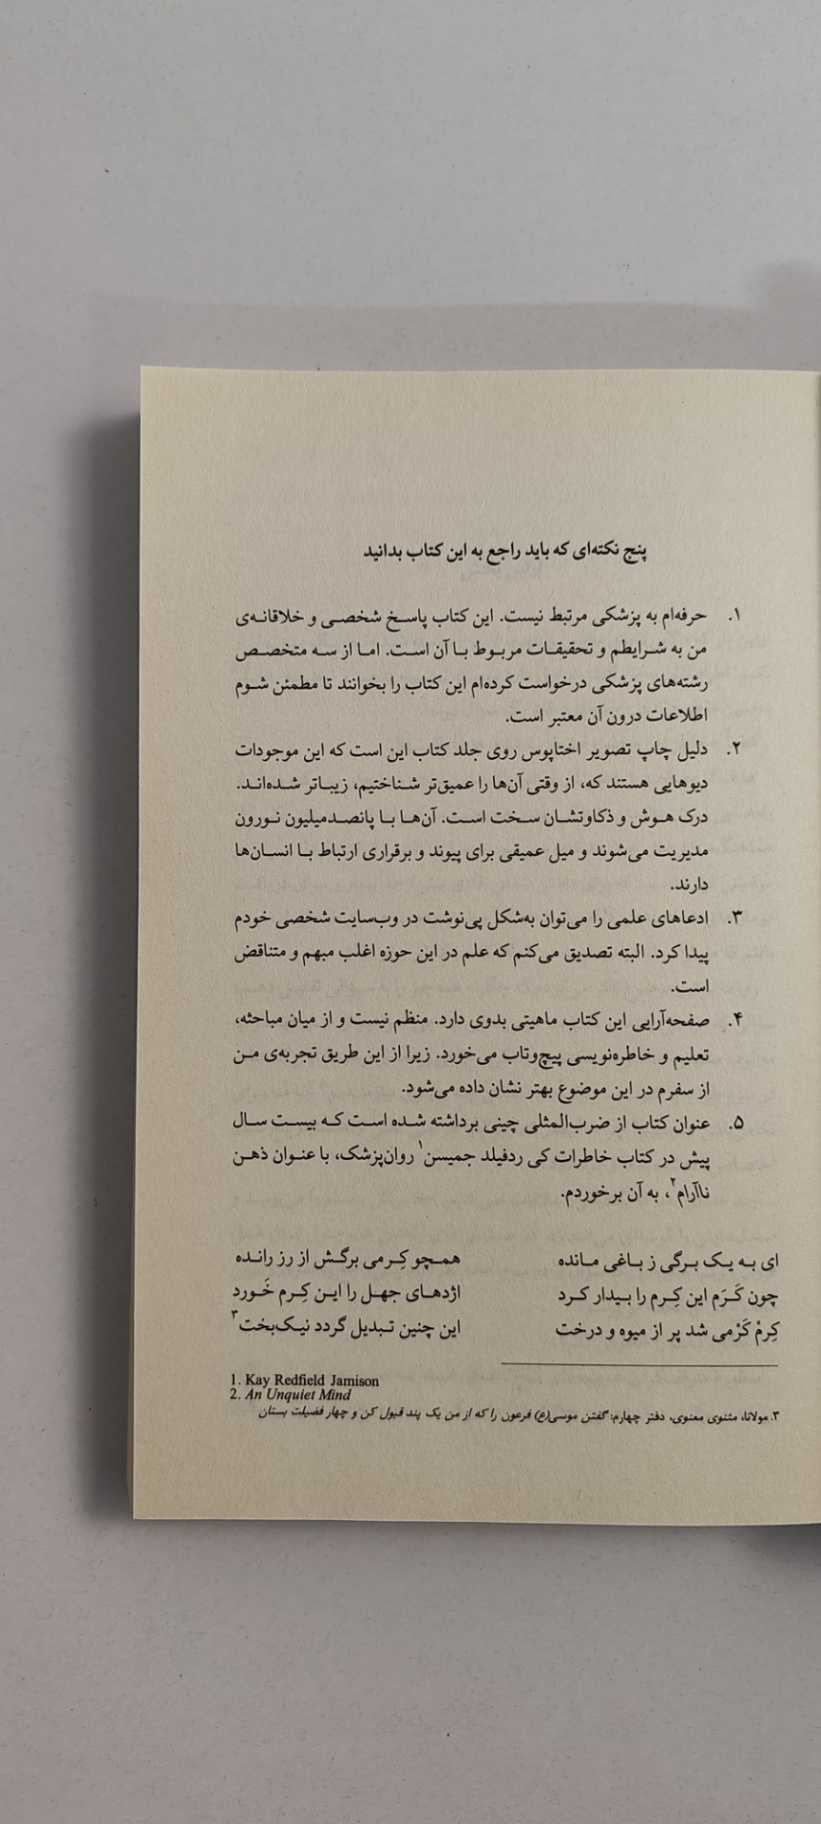 پنج نکته‌ای که باید راجع به این کتاب بدانید
۱. حرفه‌ام به پزشکی مرتبط نیست. این کتاب پاسخ شخصی و خلاقانه‌ی
من به شرایطم و تحقیقات مربوط با آن است. اما از سه متخصص
رشته‌های پزشکی درخواست کرده‌ام این کتاب را بخوانند تا مطمئن شوم
اطلاعات درون آن معتبر است.
۲. دلیل چاپ تصویر اختاپوس روی جلد کتاب این است که این موجودات
دیوهایی هستند که، از وقتی آن‌ها را عمیق‌تر شناختیم، زیباتر شده‌اند.
درک هوش و ذکاوتشان سخت است. آن‌ها با پانصدمیلیون نورون
مدیریت می‌شوند و میل عمیقی برای پیوند و برقراری ارتباط با انسان‌ها
دارند.
۳. ادعاهای علمی را می‌توان به‌شکل پی‌نوشت در وب‌سایت شخصی خودم
پیدا کرد. البته تصدیق می‌کنم که علم در این حوزه اغلب مبهم و متناقض
است.
۴. صفحه‌آرایی این کتاب ماهیتی بدوی دارد. منظم نیست و از میان مباحثه،
تعلیم و خاطره‌نویسی پیچ‌وتاب می‌خورد. زیرا از این طریق تجربه‌ی من
از سفرم در این موضوع بهتر نشان داده می‌شود.
۵. عنوان کتاب از ضرب‌المثلی چینی برداشته شده است که بیست سال
پیش در کتاب خاطرات کی ردفیلد جمیسن۱ روان‌پزشک، با عنوان ذهن
ناآرام۲، به آن برخوردم.
ای به یک برگی ز باغی مانده همچو کِرمی برگش از رز رانده
چون کَرَم این کِرم را بیدار کرد اژدهای جهل را این کِرم خَورد
کِرمْ کَرْمی شد پر از میوه و درخت این چنین تبدیل گردد نیک‌بخت۳
1. Kay Redfield Jamison
2. An Unquiet Mind
۳. مولانا، مثنوی معنوی، دفتر چهارم: گفتن موسی(ع) فرعون را که از من یک پند قبول کن و چهار فضیلت بستان